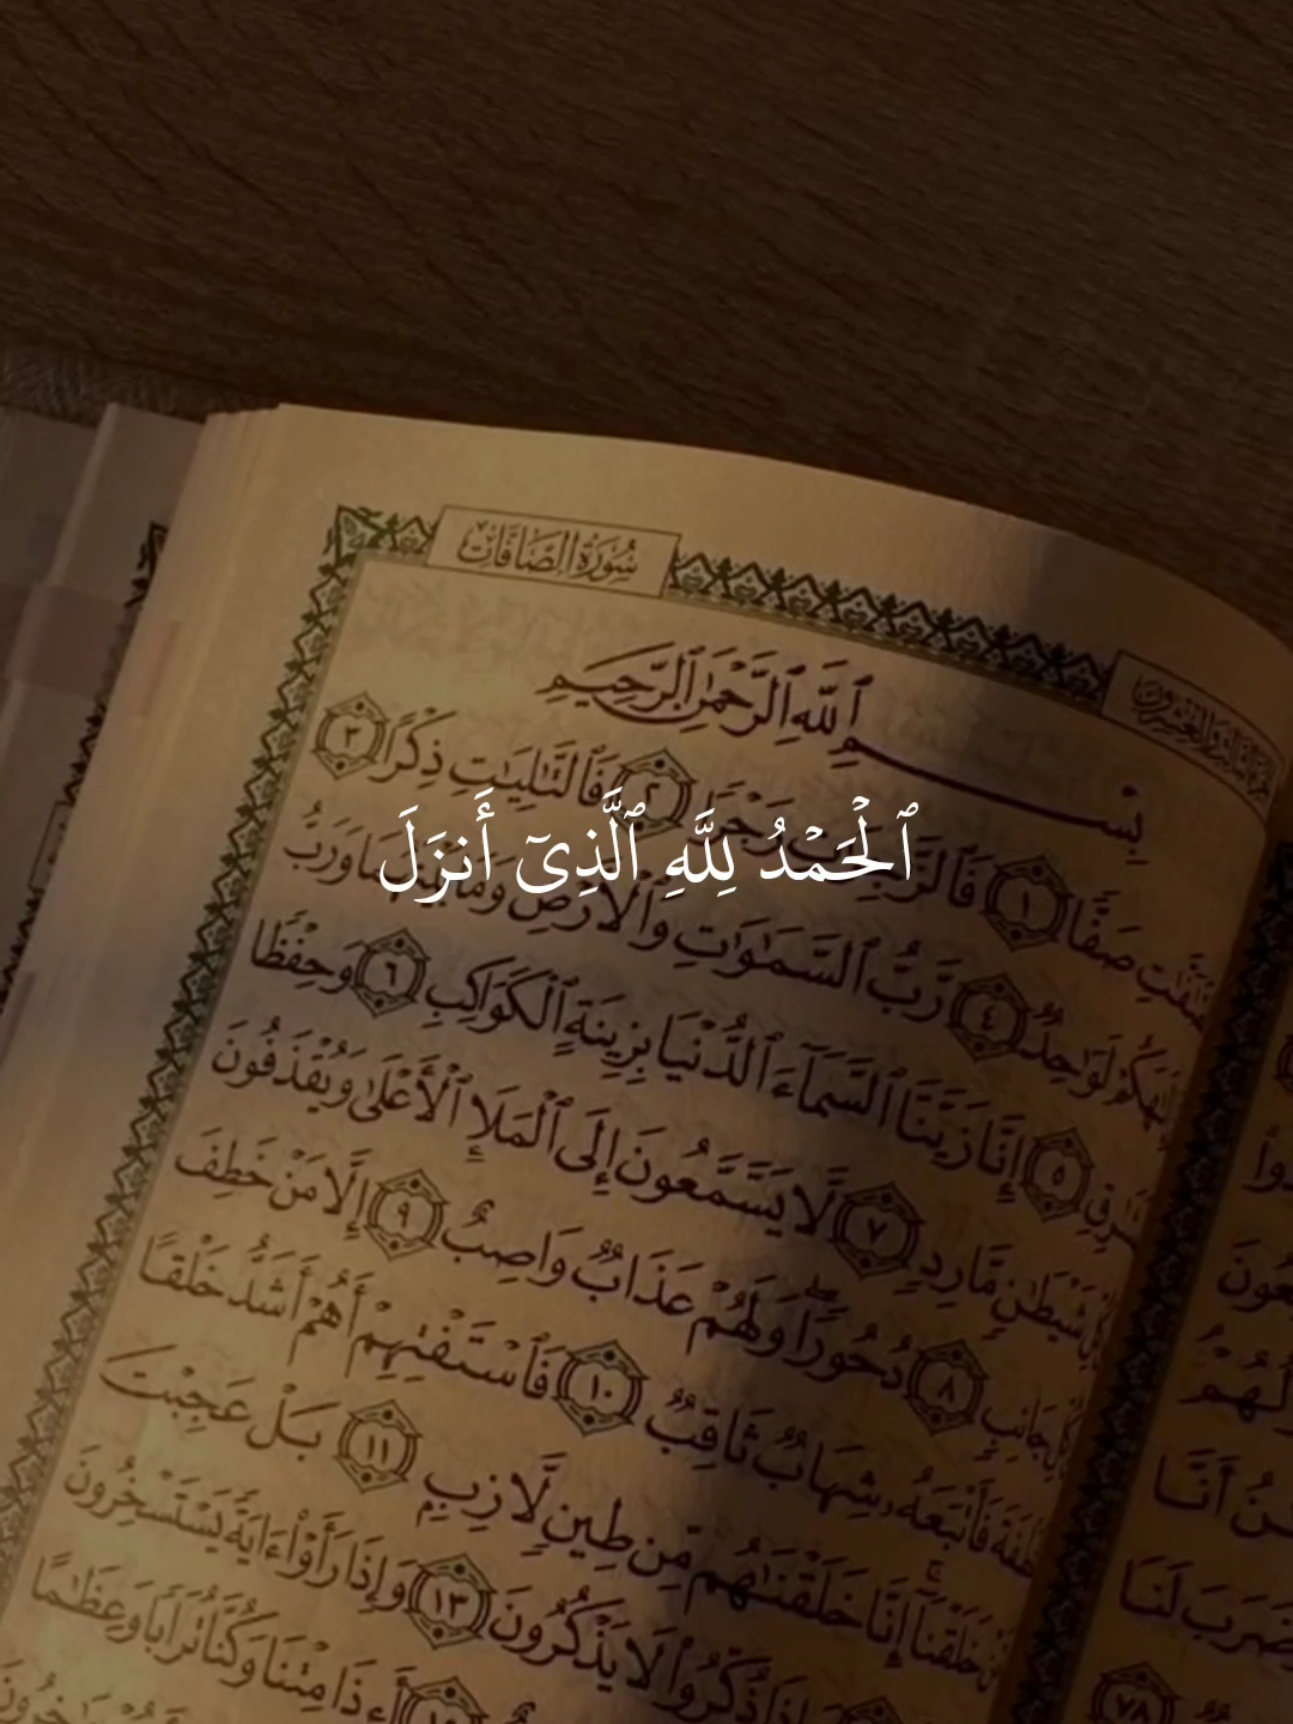 سُورَةُ الصَّافَّاتِ
بِسْمِ ٱللَّهِ ٱلرَّحْمَٰنِ ٱلرَّحِيمِ
صَفًّا ١ ٢ فَٱلتَّٰلِيَٰتِ ذِكْرًا ٣
ٱلْحَمْدُ لِلَّهِ ٱلَّذِىٓ أَنزَلَ
لَوَٰحِدٌ ٤ رَّبُّ ٱلسَّمَٰوَٰتِ وَٱلْأَرْضِ وَرَبُّ
٥ إِنَّا زَيَّنَّا ٱلسَّمَآءَ ٱلدُّنْيَا بِزِينَةٍ ٱلْكَوَاكِبِ ٦ وَحِفْظًا
شَيْطَٰنٍ مَّارِدٍ ٧ لَّا يَسَّمَّعُونَ إِلَى ٱلْمَلَإِ ٱلْأَعْلَىٰ وَيُقْذَفُونَ
جَانِبٍ ٨ دُحُورًا وَلَهُمْ عَذَابٌ وَاصِبٌ ٩ إِلَّا مَنْ خَطِفَ
فَأَتْبَعَهُۥ شِهَابٌ ثَاقِبٌ ١٠ فَٱسْتَفْتِهِمْ أَهُمْ أَشَدُّ خَلْقًا
خَلَقْنَآ إِنَّا خَلَقْنَٰهُم مِّن طِينٍ لَّازِبٍ ١١ بَلْ عَجِبْتَ
ذُكِّرُوا۟ لَا يَذْكُرُونَ ١٣ وَإِذَا رَأَوْا۟ ءَايَةً يَسْتَسْخِرُونَ
أَءِذَا مِتْنَا وَكُنَّا تُرَابًا وَعِظَٰمًا
أَنَّا
لَنَا
٧٨